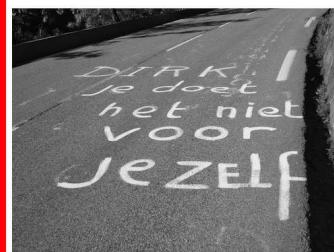 DIRK,
je doet
het niet
voor
JeZELf